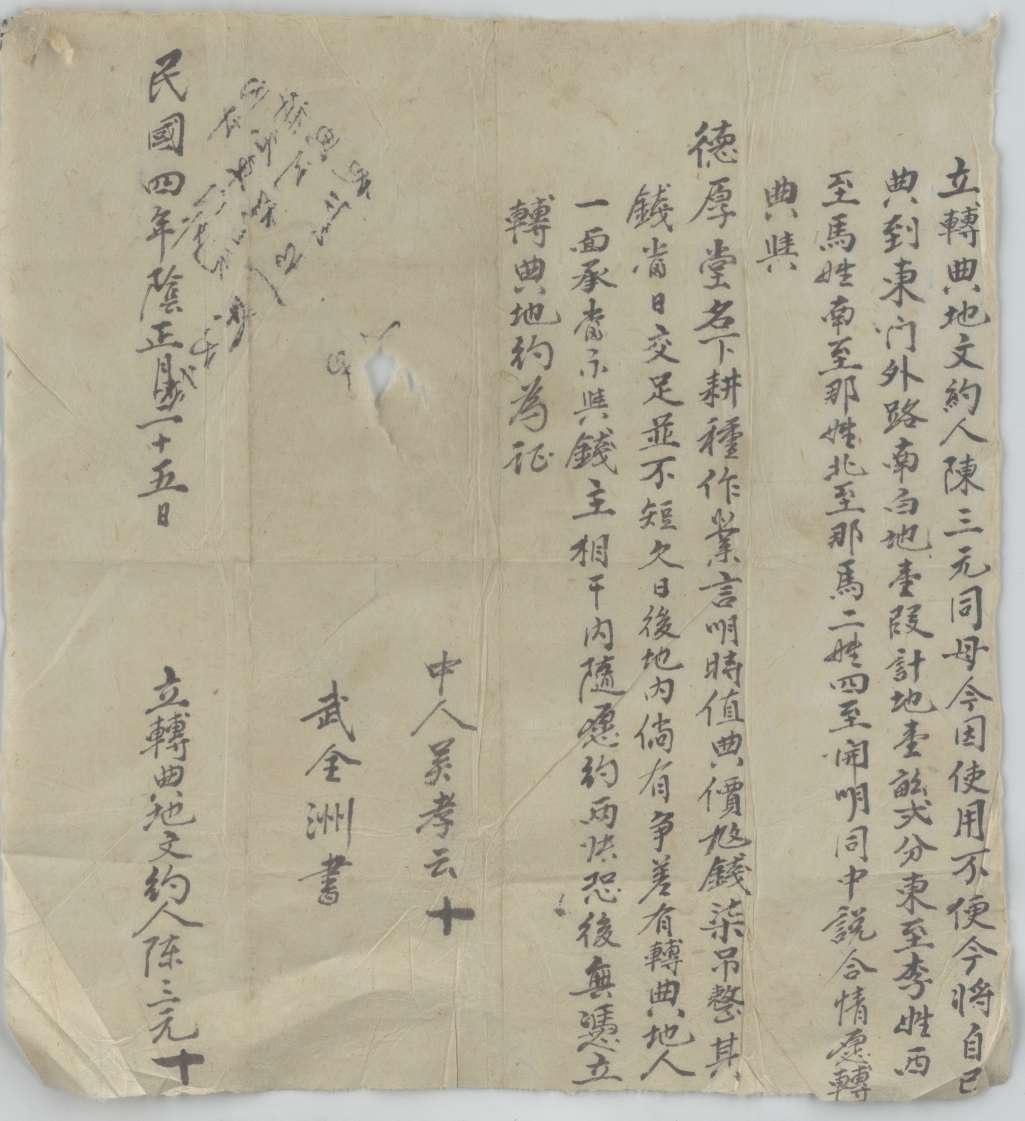 立轉典地文約人陳三元同母今因使用不便今將自己
典到東门外路南白地壹段計地壹畝弍分東至李姓西
至馬姓南至那姓北至那馬二姓四至開明同中說合情愿轉
典與
德厚堂名下耕種作業言明時值典價錢柒吊整其
錢當日交足並不短欠日後地內倘有争差有轉典地人
一面承當不與錢主相干內隨愿約兩恐後無憑立
轉典地約為証
中人吴孝云十
武全洲書
民國四年陰正月二十五日
立轉典地文約人陈三元十